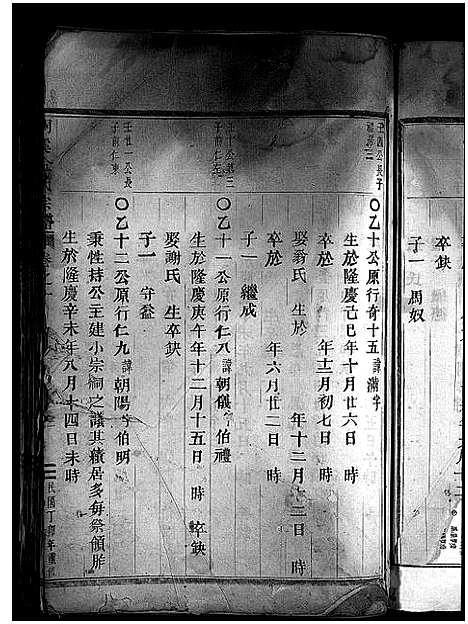 卒缺
子一 周奴
壬四公長子
〇乙十公原行奇十五 諱 字
生於隆慶己巳年十月廿六日 時
卒於 年十二月初七日 時
娶翁氏 生於 年十二月十二日 時
卒於 年六月廿二日 時
子一 繼成
〇乙十一公原行仁八 諱朝儀 字伯禮
生於隆慶庚午年十二月十五日 時 卒缺
娶謝氏 生卒缺
子一 守益
壬廿一公長
子前仁東
〇乙十二公原行仁九 諱朝陽 字伯明
秉性持公主建小宗祠之議其績居多每祭頒胙
生於隆慶辛未年八月十四日未時